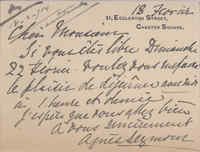 18 Février
11, ECCLESTON STREET,
CHESTER SQUARE.
Cher Monsieur
Si vous êtes libre Dimanche
22 Février - voulez vous me faire
le plaisir de déjeuner avec moi
à 1 heure et demie
J'espère que vous allez bien
à vous sincèrement
Agnes Seymour